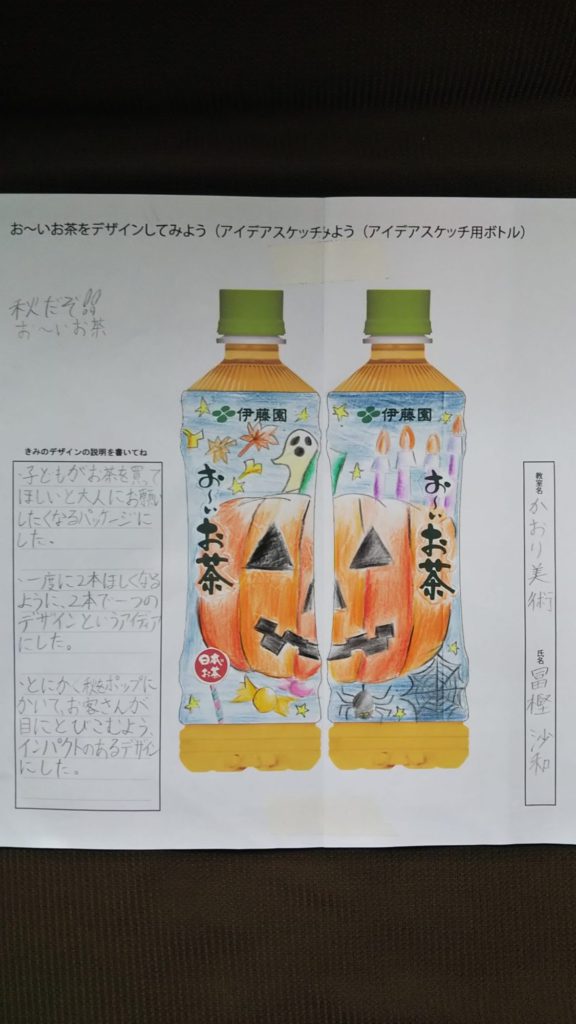 お〜いお茶をデザインしてみよう（アイデアスケッチみよう（アイデアスケッチ用ボトル）
秋だぞ!!
お〜いお茶
きみのデザインの説明を書いてね
・子どもがお茶を買って
ほしいと大人にお願い
したくなるパッケージに
した。
・一度に2本ほしくなる
ように、2本で一つの
デザインというアイデア
にした。
・とにかく秋をポップに
かいて、お客さんが
目にとびこむよう、
インパクトのあるデザイン
にした。
伊藤園
お〜いお茶
日本の
お茶
伊藤園
お〜いお茶
教室名
かおり美術
氏名
冨樫 沙和